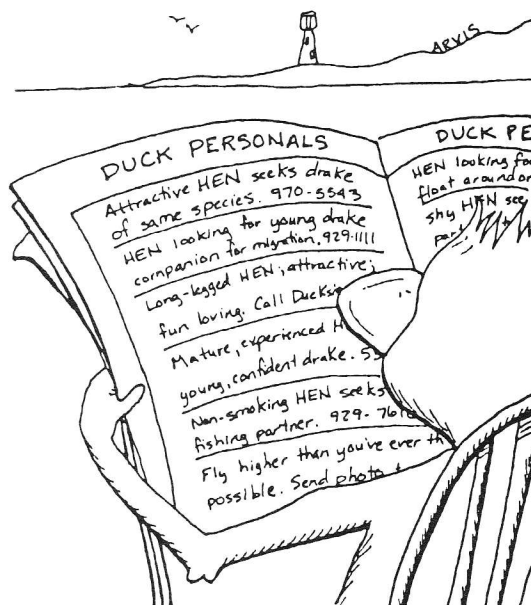 ARVIS
DUCK PERSONALS
Attractive HEN seeks drake
of same species. 970-5543
HEN looking for young drake
companion for migration. 929-1111
Long-legged HEN; attractive;
fun loving. Call
Mature, experienced
young, confident drake.
Non-smoking HEN seeks
fishing partner. 929-
Fly higher than you've ever
possible. Send photo
DUCK
HEN looking
float around
shy HEN